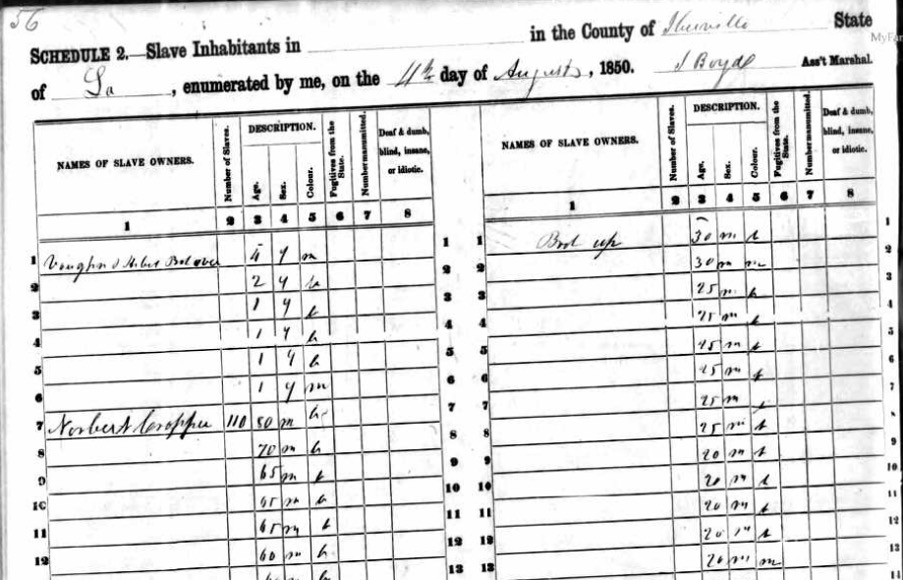 56
SCHEDULE 2.—Slave Inhabitants in in the County of Iberville State
MyFam
of La , enumerated by me, on the 11th day of August, 1850. J Boyd Ass't Marshal.
NAMES OF SLAVE OWNERS. Number of Slaves. DESCRIPTION. Age. Sex. Colour. Fugitives from the State. Number manumitted. Deaf & dumb, blind, insane, or idiotic.
1 2 3 4 5 6 7 8
1 Vaughn & Bot over 4 f m 1
2 2 f b 2
3 1 f b 3
4 1 f b 4
5 1 f b 5
6 1 f m 6
7 Norbert Cropper 110 80 m b 7
8 70 m b 8
9 65 m b 9
10 65 m b 10
11 65 m b 11
12 60 m b 12
13
NAMES OF SLAVE OWNERS. Number of Slaves. DESCRIPTION. Age. Sex. Colour. Fugitives from the State. Number manumitted. Deaf & dumb, blind, insane, or idiotic.
1 2 3 4 5 6 7 8
1 Brot up 30 m b 1
2 30 m m 2
3 25 m b 3
4 25 m b 4
5 25 m b 5
6 25 m b 6
7 25 m b 7
8 25 m b 8
9 20 m b 9
10 20 m b 10
11 20 m b 11
12 20 m b 12
13 20 m m 13